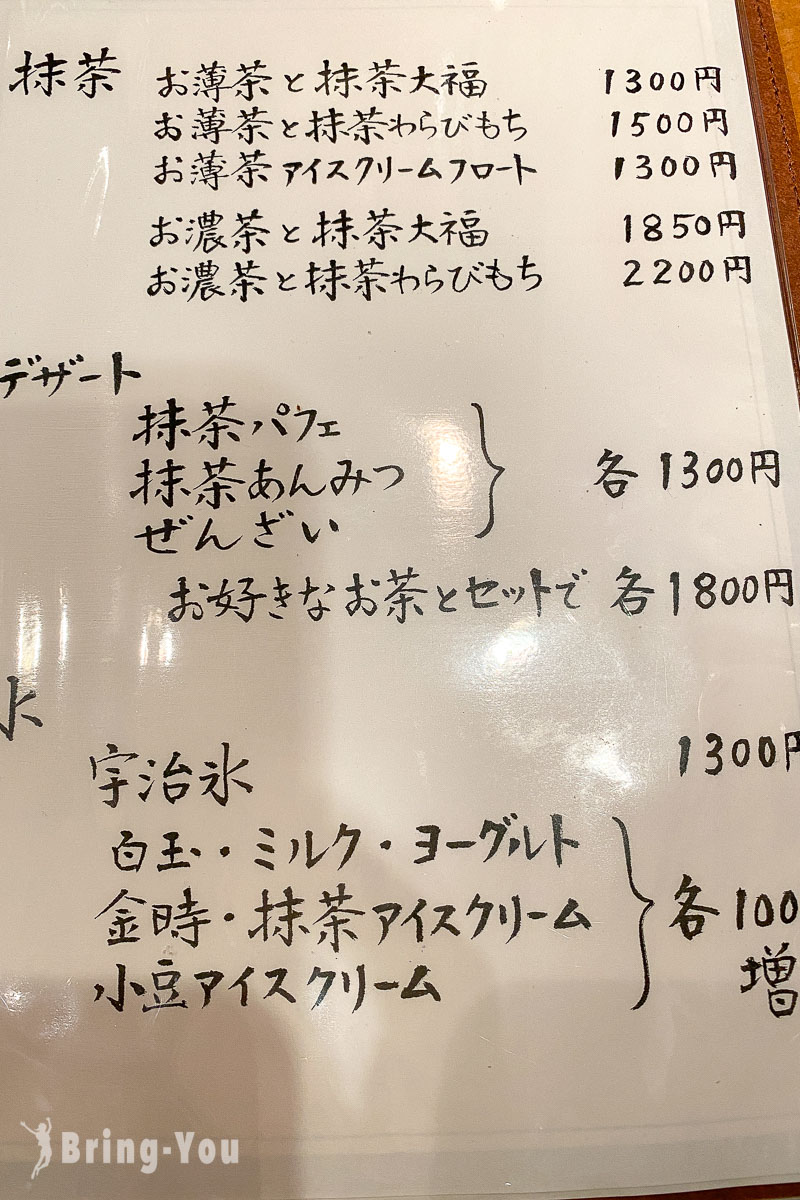 抹茶 お薄茶と抹茶大福 1300円
お薄茶と抹茶わらびもち 1500円
お薄茶アイスクリームフロート 1300円
お濃茶と抹茶大福 1850円
お濃茶と抹茶わらびもち 2200円
デザート
抹茶パフェ
抹茶あんみつ 各1300円
ぜんざい
お好きなお茶とセットで 各1800円
氷
宇治氷 1300円
白玉・ミルク・ヨーグルト
金時・抹茶アイスクリーム 各100
増
小豆アイスクリーム
Bring-You